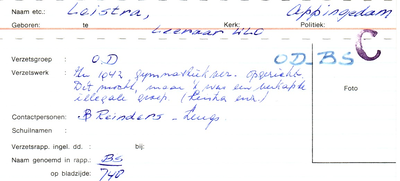 Naam etc.: Loistra, Appingedam
Geboren: te Kerk: Politiek:
Leeraar ULO
Verzetsgroep : O.D OD-BS C
Verzetswerk : In 1942 gymnastiekver. opgericht.
Dit mocht, maar 't was een verkapte
illegale groep. Foto
Contactpersonen: B Reinders -
Schuilnaam :
Verzetsrapp. ingel. dd. : bij:
Naam genoemd in rapp.: BS
op bladzijde: 740